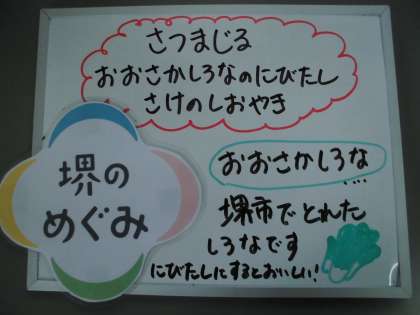 さつまじる
おおさかしろなのにびたし
さけのしおやき
堺の
めぐみ
おおさかしろな
...
堺市でとれた
しろなです
にびたしにするとおいしい!